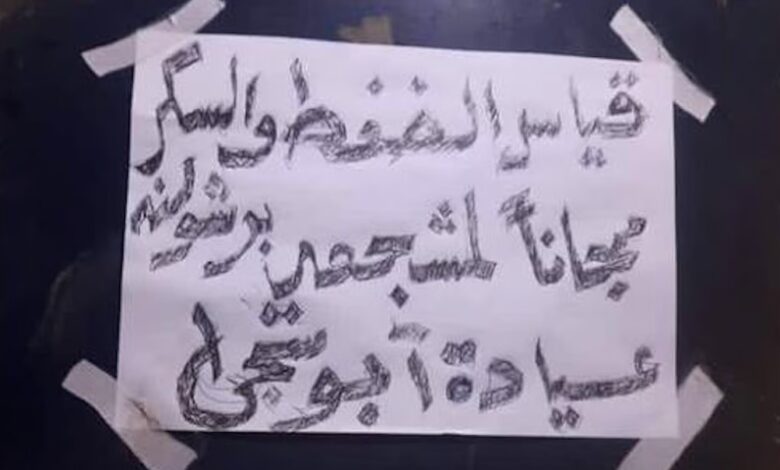 قياس الضغط والسكر
مجاناً لمشجعين برشولنه
عيادة آبو